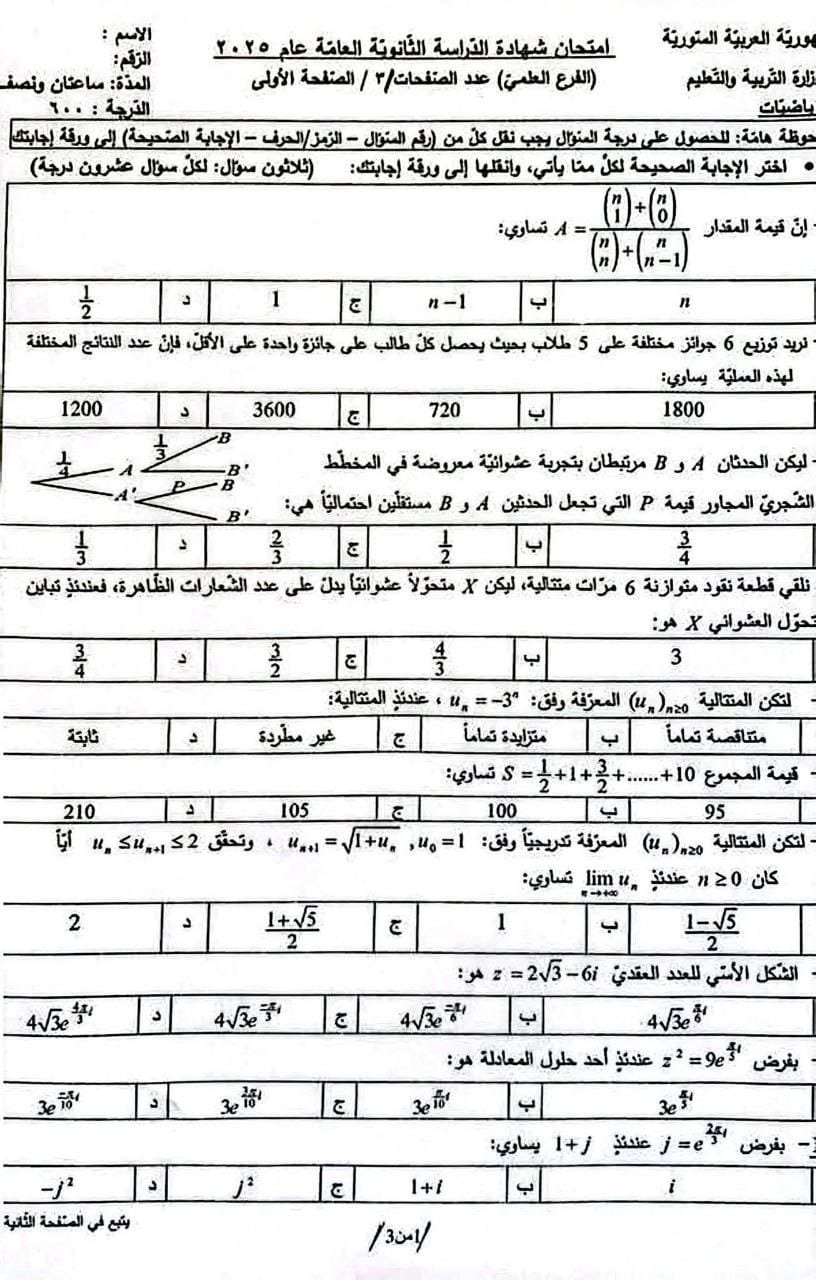 الاسم :
الرقم:
المدّة: ساعتان ونصف
الدّرجة : ٦٠٠
امتحان شهادة الدّراسة الثّانويّة العامّة عام ٢٠٢٥
(الفرع العلميّ) عدد الصّفحات/٣ / الصّفحة الأولى
هوريّة العربيّة السّوريّة
زارة التّربية والتّعليم
ياضيّات
حوظة هامّة: للحصول على درجة السّؤال يجب نقل كلّ من (رقم السّؤال – الرّمز/الحرف – الإجابة الصّحيحة) إلى ورقة إجابتك
• اختر الإجابة الصحيحة لكلّ ممّا يأتي، وانقلها إلى ورقة إجابتك: (ثلاثون سؤال: لكلّ سؤال عشرون درجة)
- إنّ قيمة المقدار A = ((n 1) + (n 0)) / ((n n) + (n n−1)) تساوي:
n | ب | n−1 | ج | 1 | د | 1/2
- نريد توزيع 6 جوائز مختلفة على 5 طلاب بحيث يحصل كلّ طالب على جائزة واحدة على الأقلّ، فإنّ عدد النتائج المختلفة
لهذه العمليّة يساوي:
1800 | ب | 720 | ج | 3600 | د | 1200
- ليكن الحدثان A و B مرتبطان بتجربة عشوائيّة معروضة في المخطّط
الشّجريّ المجاور قيمة P التي تجعل الحدثين A و B مستقلّين احتماليّاً هي:
1/4 A 1/3 B B' A' P B B'
3/4 | ب | 1/2 | ج | 2/3 | د | 1/3
نلقي قطعة نقود متوازنة 6 مرّات متتالية، ليكن X متحوّلاً عشوائيّاً يدلّ على عدد الشّعارات الظّاهرة، فعندئذٍ تباين
تحوّل العشوائي X هو:
3 | ب | 4/3 | ج | 3/2 | د | 3/4
- لتكن المتتالية (uₙ)ₙ≥₀ المعرّفة وفق: uₙ = −3ⁿ ، عندئذٍ المتتالية:
متناقصة تماماً | ب | متزايدة تماماً | ج | غير مطّردة | د | ثابتة
- قيمة المجموع S = 1/2 + 1 + 3/2 + ...... + 10 تساوي:
95 | ب | 100 | ج | 105 | د | 210
- لتكن المتتالية (uₙ)ₙ≥₀ المعرّفة تدريجيّاً وفق: uₙ₊₁ = √(1+uₙ) , u₀ = 1 ، وتحقّق uₙ ≤ uₙ₊₁ ≤ 2 أيّاً
كان n ≥ 0 عندئذٍ lim uₙ n→+∞ تساوي:
(1−√5)/2 | ب | 1 | ج | (1+√5)/2 | د | 2
- الشّكل الأسّي للعدد العقديّ z = 2√3 − 6i هو:
4√3e^(π/6 i) | ب | 4√3e^(−π/6 i) | ج | 4√3e^(−π/3 i) | د | 4√3e^(4π/3 i)
- بفرض z² = 9e^(π/5 i) عندئذٍ أحد حلول المعادلة هو:
3e^(π/5 i) | ب | 3e^(π/10 i) | ج | 3e^(2π/10 i) | د | 3e^(−π/10 i)
- بفرض j = e^(2π/3 i) عندئذٍ 1+j يساوي:
i | ب | 1+i | ج | j² | د | −j²
يتبع في الصّفحة الثّانية
/1من3/